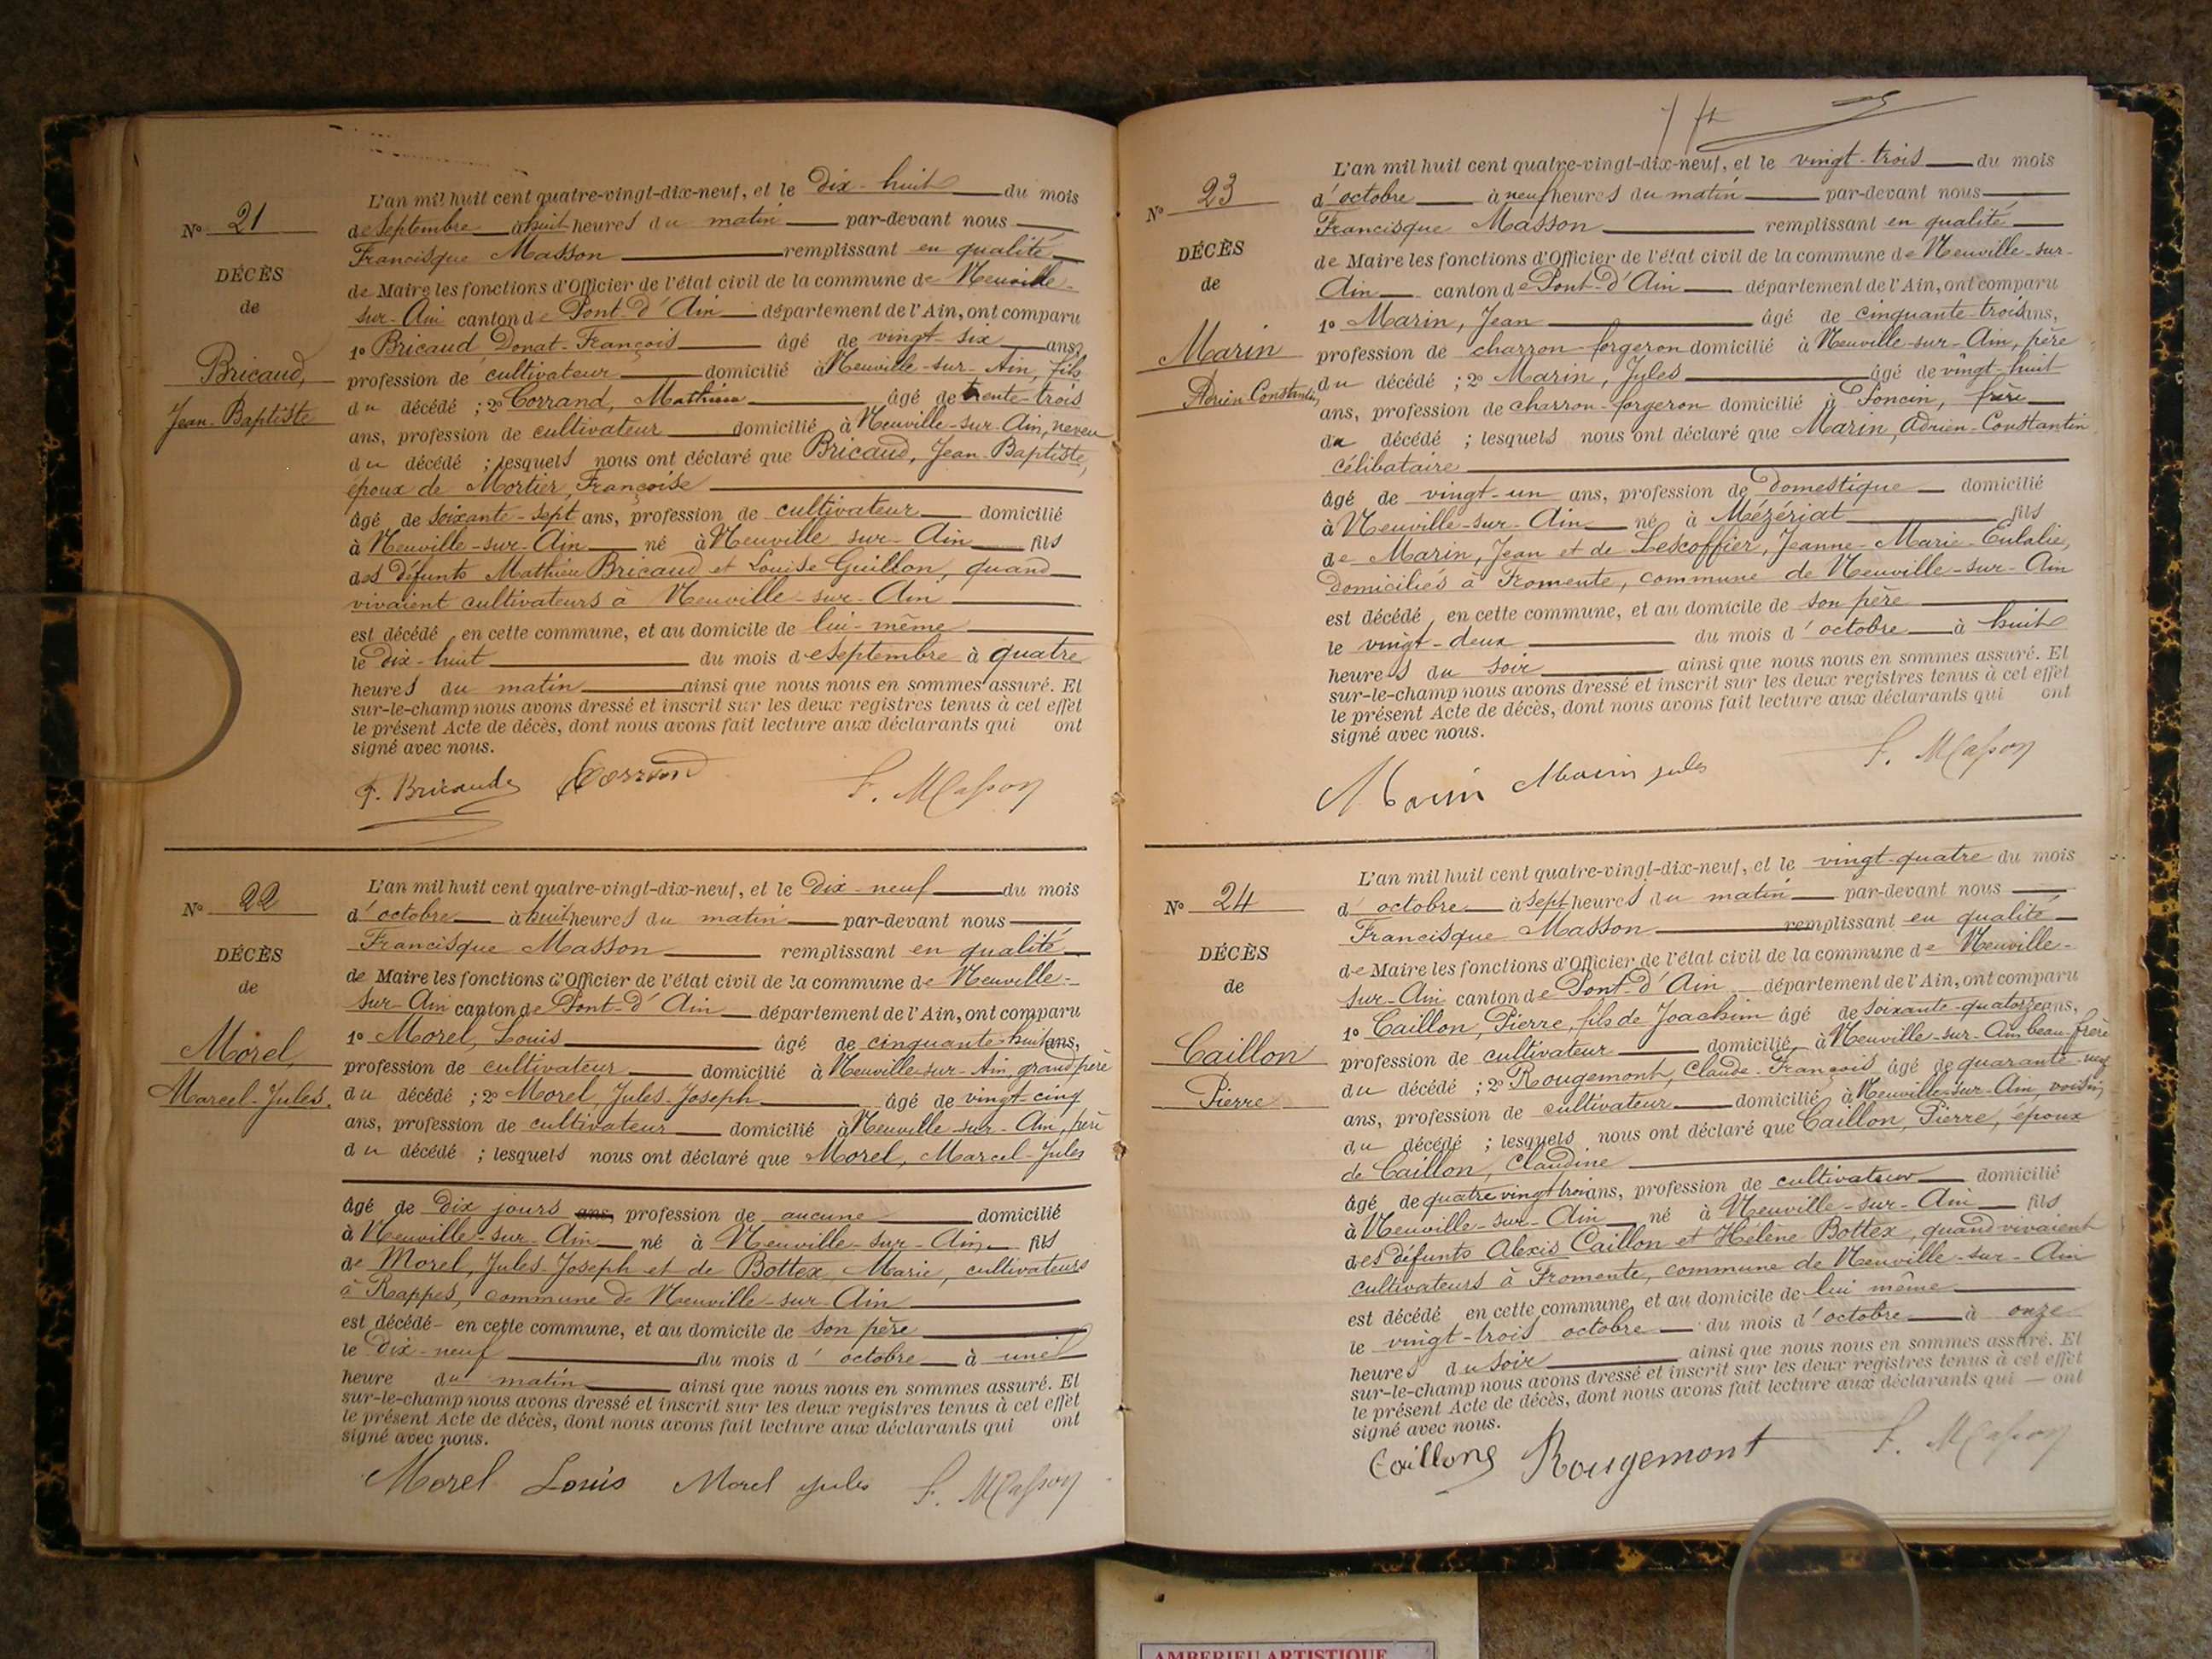 Nº 21
DÉCÈS
de
Bricaud,
Jean-Baptiste
L'an mil huit cent quatre-vingt-dix-neuf, et le dix-huit du mois
de septembre à huit heures du matin par-devant nous
Francisque Masson remplissant en qualité
de Maire les fonctions d'Officier de l'état civil de la commune de Neuville-
sur-Ain canton de Pont-d'Ain département de l'Ain, ont comparu
1º Bricaud, Donat-François âgé de vingt-six ans,
profession de cultivateur domicilié à Neuville-sur-Ain, fils
du décédé ; 2º Corrand, Mathieu âgé de trente-trois
ans, profession de cultivateur domicilié à Neuville-sur-Ain, neveu
du décédé ; lesquels nous ont déclaré que Bricaud, Jean-Baptiste,
époux de Mortier, Françoise
âgé de soixante-sept ans, profession de cultivateur domicilié
à Neuville-sur-Ain né à Neuville sur-Ain fils
des défunts Mathieu Bricaud et Louise Guillon, quand
vivaient cultivateurs à Neuville-sur-Ain
est décédé en cette commune, et au domicile de lui-même
le dix-huit du mois de septembre à quatre
heures du matin ainsi que nous nous en sommes assuré. Et
sur-le-champ nous avons dressé et inscrit sur les deux registres tenus à cet effet
le présent Acte de décès, dont nous avons fait lecture aux déclarants qui ont
signé avec nous.
F. Bricaud Corrand F. Masson
Nº 22
DÉCÈS
de
Morel,
Marcel-Jules.
L'an mil huit cent quatre-vingt-dix-neuf, et le dix-neuf du mois
d'octobre à huit heures du matin par-devant nous
Francisque Masson remplissant en qualité
de Maire les fonctions d'Officier de l'état civil de la commune de Neuville-
sur-Ain canton de Pont-d'Ain département de l'Ain, ont comparu
1º Morel, Louis âgé de cinquante-huit ans,
profession de cultivateur domicilié à Neuville-sur-Ain, grand père
du décédé ; 2º Morel, Jules-Joseph âgé de vingt-cinq
ans, profession de cultivateur domicilié à Neuville-sur-Ain, père
du décédé ; lesquels nous ont déclaré que Morel, Marcel-Jules
âgé de dix jours ans, profession de aucune domicilié
à Neuville-sur-Ain né à Neuville-sur-Ain fils
de Morel, Jules-Joseph et de Bottex, Marie, cultivateurs
à Rappes, commune de Neuville-sur-Ain
est décédé en cette commune, et au domicile de son père
le dix-neuf du mois d'octobre à une
heure du matin ainsi que nous nous en sommes assuré. Et
sur-le-champ nous avons dressé et inscrit sur les deux registres tenus à cet effet
le présent Acte de décès, dont nous avons fait lecture aux déclarants qui ont
signé avec nous.
Morel Louis Morel jules F. Masson
Nº 23
DÉCÈS
de
Marin
Adrien Constantin
L'an mil huit cent quatre-vingt-dix-neuf, et le vingt-trois du mois
d'octobre à neuf heures du matin par-devant nous
Francisque Masson remplissant en qualité
de Maire les fonctions d'Officier de l'état civil de la commune de Neuville-sur-
Ain canton de Pont-d'Ain département de l'Ain, ont comparu
1º Marin, Jean âgé de cinquante-trois ans,
profession de charron-forgeron domicilié à Neuville-sur-Ain, père
du décédé ; 2º Marin, Jules âgé de vingt-huit
ans, profession de charron-forgeron domicilié à Poncin, frère
du décédé ; lesquels nous ont déclaré que Marin, Adrien-Constantin,
célibataire
âgé de vingt-un ans, profession de domestique domicilié
à Neuville-sur-Ain né à Mézériat fils
de Marin, Jean et de Lescoffier, Jeanne-Marie-Eulalie,
domiciliés à Fromente, commune de Neuville-sur-Ain
est décédé, en cette commune, et au domicile de son père
le vingt-deux du mois d'octobre à huit
heures du soir ainsi que nous nous en sommes assuré. Et
sur-le-champ nous avons dressé et inscrit sur les deux registres tenus à cet effet
le présent Acte de décès, dont nous avons fait lecture aux déclarants qui ont
signé avec nous.
Marin Marin jules F. Masson
Nº 24
DÉCÈS
de
Caillon
Pierre
L'an mil huit cent quatre-vingt-dix-neuf, et le vingt-quatre du mois
d'octobre à sept heures du matin par-devant nous
Francisque Masson remplissant en qualité
de Maire les fonctions d'Officier de l'état civil de la commune de Neuville-
sur-Ain canton de Pont-d'Ain département de l'Ain, ont comparu
1º Caillon, Pierre, fils de Joachim âgé de soixante-quatorze ans,
profession de cultivateur domicilié à Neuville-sur-Ain beau-frère
du décédé ; 2º Rougemont, Claude-François âgé de quarante-neuf
ans, profession de cultivateur domicilié à Neuville-sur-Ain, voisin
du décédé ; lesquels nous ont déclaré que Caillon, Pierre, époux
de Caillon, Claudine
âgé de quatre vingt trois ans, profession de cultivateur domicilié
à Neuville-sur-Ain né à Neuville-sur-Ain fils
des défunts Alexis Caillon et Hélène Bottex, quand vivaient
cultivateurs à Fromente, commune de Neuville-sur-Ain
est décédé en cette commune, et au domicile de lui même
le vingt-trois octobre du mois d'octobre à onze
heures du soir ainsi que nous nous en sommes assuré. Et
sur-le-champ nous avons dressé et inscrit sur les deux registres tenus à cet effet
le présent Acte de décès, dont nous avons fait lecture aux déclarants qui ont
signé avec nous.
Caillon Rougemont F. Masson
AMBERIEU ARTISTIQUE